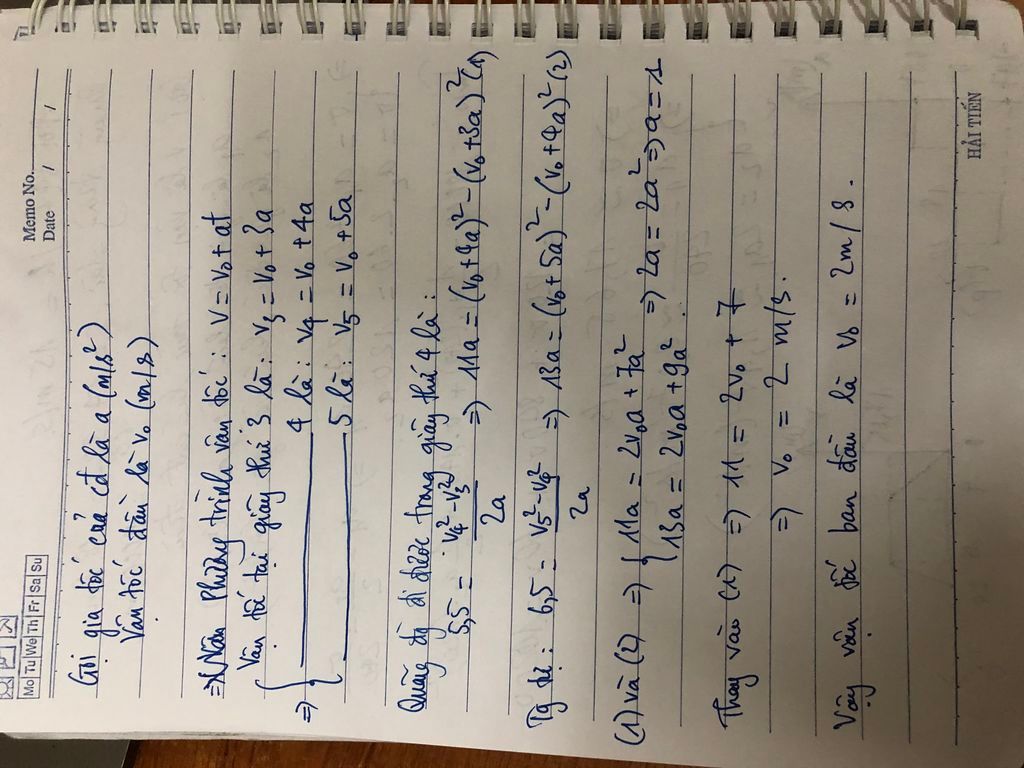 Memo No.
Mo Tu We Th Fr Sa Su
Date / /
Gọi gia tốc của cđ là a (m/s²)
Vận tốc đầu là v₀ (m/s)
Phương trình vận tốc: v = v₀ + at
Vận tốc tại giây thứ 3 là: v₃ = v₀ + 3a
=> 4 là: v₄ = v₀ + 4a
5 là: v₅ = v₀ + 5a
Quãng đg đi được trong giây thứ 4 là:
5,5 = (v₄² - v₃²)/2a => 11a = (v₀ + 4a)² - (v₀ + 3a)² (1)
Tg tự: 6,5 = (v₅² - v₄²)/2a => 13a = (v₀ + 5a)² - (v₀ + 4a)² (2)
(1) và (2) => { 11a = 2v₀a + 7a²
13a = 2v₀a + 9a² => 2a = 2a² => a = 1
Thay vào (1) => 11 = 2v₀ + 7
=> v₀ = 2 m/s.
Vậy vận tốc ban đầu là v₀ = 2m/s.
HẢI TIẾN